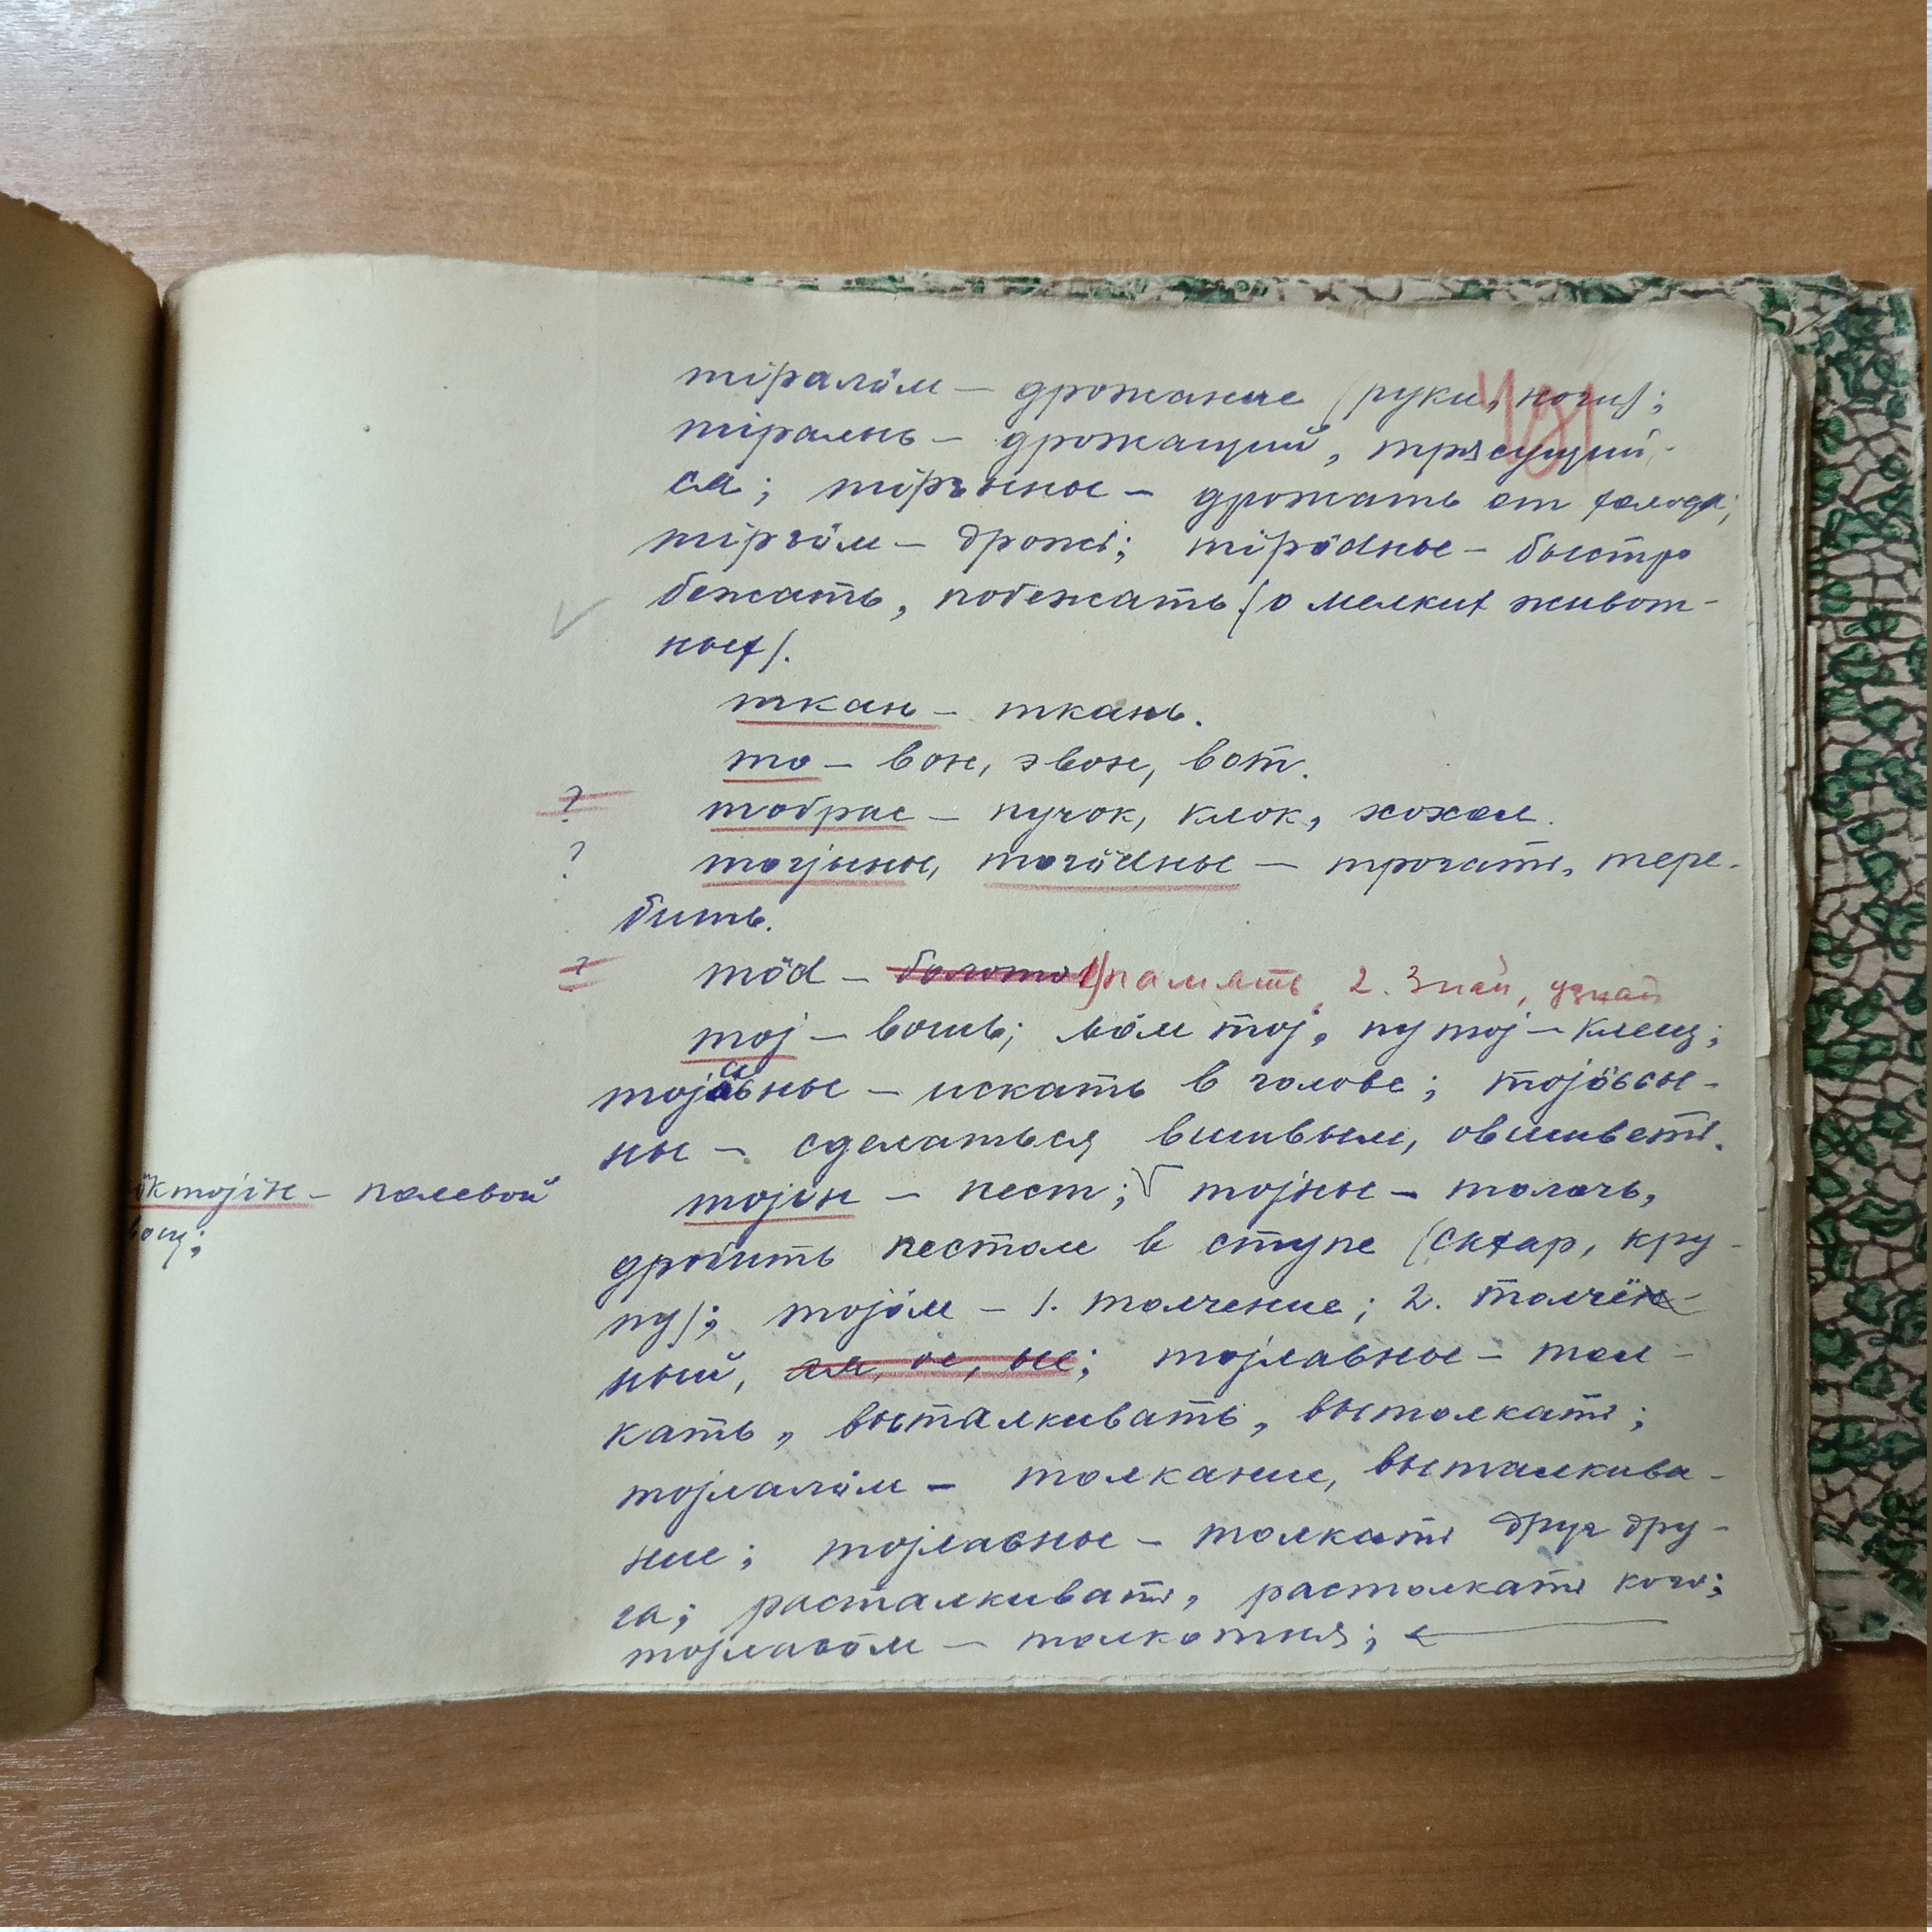 181
тіралӧм – дрожание (руки, ноги);
тіралнь – дрожащий, трясущий-
ся; тіръяные – дрожать от холода;
тіргӧм – дрожь; тірӧdны – быстро
бежать, побежать (о мелких живот-
ных).
ткань – ткань.
то – вон, эвон, вот.
? тобрас – пучок, клок, хохол.
? тогјыны, тогӧdны – трогать, тере-
бить.
? тӧd – болото 1) память, 2. Знай, узнай
тој – вошь; вӧм тој, пу тој – клещ;
тојасьны – искать в голове; тојӧссы-
ны – сделаться вшивым, овшиветь.
ӧктојін – полевой
вощ;
тојін – пест; V тојны – толочь,
дробить пестом в ступе (сахар, кру-
пу); тојӧм – 1. толчение; 2. толчён-
ный, ая, ое, ые; тојлавны – тол-
кать, выталкивать, вытолкать;
тојлалӧм – толкание, выталкива-
ние; тојласны – толкать друг дру-
га; расталкивать, растолкать кого;
тојласӧм – толкотня;